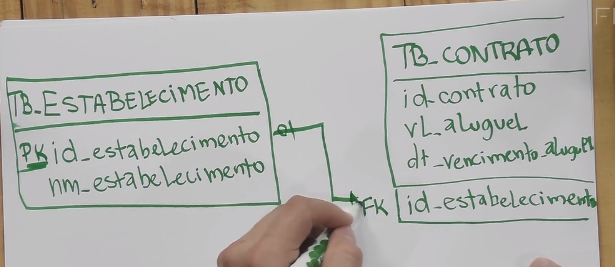 TB_ESTABELECIMENTO
PK id_estabelecimento
nm_estabelecimento
TB_CONTRATO
id_contrato
vL_aluguel
dt_vencimento_aluguel
FK id_estabelecimento